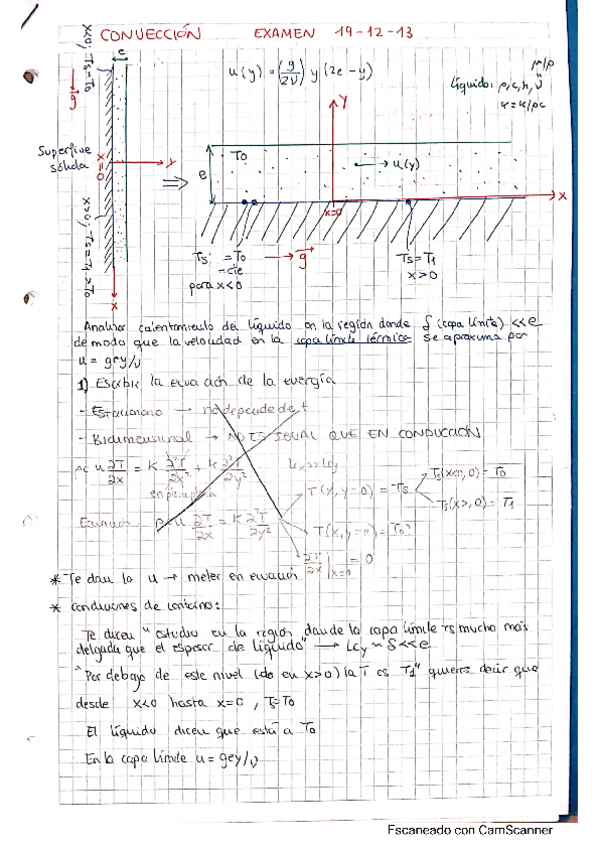 CONVECCIÓN EXAMEN 19-12-13
x<0; Ts=T0
e
g
u(y) = (g/2ν) y (2e-y)
μ/ρ
líquido: ρ, c, k, ν
α=k/ρc
Superficie
sólida
x=0
y
x>0; Ts=T1>T0
x
⇒
Y
e
T0
u(y)
x=0
X
Ts: =T0
=cte
para x<0
g
Ts=T1
x>0
Analizar calentamiento del líquido en la región donde δ (capa límite) <<e
de modo que la velocidad en la capa límite térmica se aproxima por
u = gey/ν
1) Escribir la ecuación de la energía
- Estacionario → no depende de t
- Bidimensional → NO ES IGUAL QUE EN CONDUCCIÓN
ρc u ∂T/∂x = k ∂²T/∂x² + k ∂²T/∂y²
Lx >> Lcy
T(x, y=0) = Ts
Ts(x<0, 0) = T0
Ts(x>, 0) = T1
Ecuación ρc u ∂T/∂x = k ∂²T/∂y²
∂T/∂x|x=0 = 0
* Te dan la u → meter en ecuación
* condiciones de contorno:
Te dicen "estudio en la región donde la capa límite es mucho más
delgada que el espesor de líquido" → Lcy ~ δ<<e
"Por debajo de este nivel (do en x>0) la T es T1" quiere decir que
desde x<0 hasta x=0, Ts=T0
El líquido dicen que está a T0
En la capa límite u = gey/ν
Escaneado con CamScanner